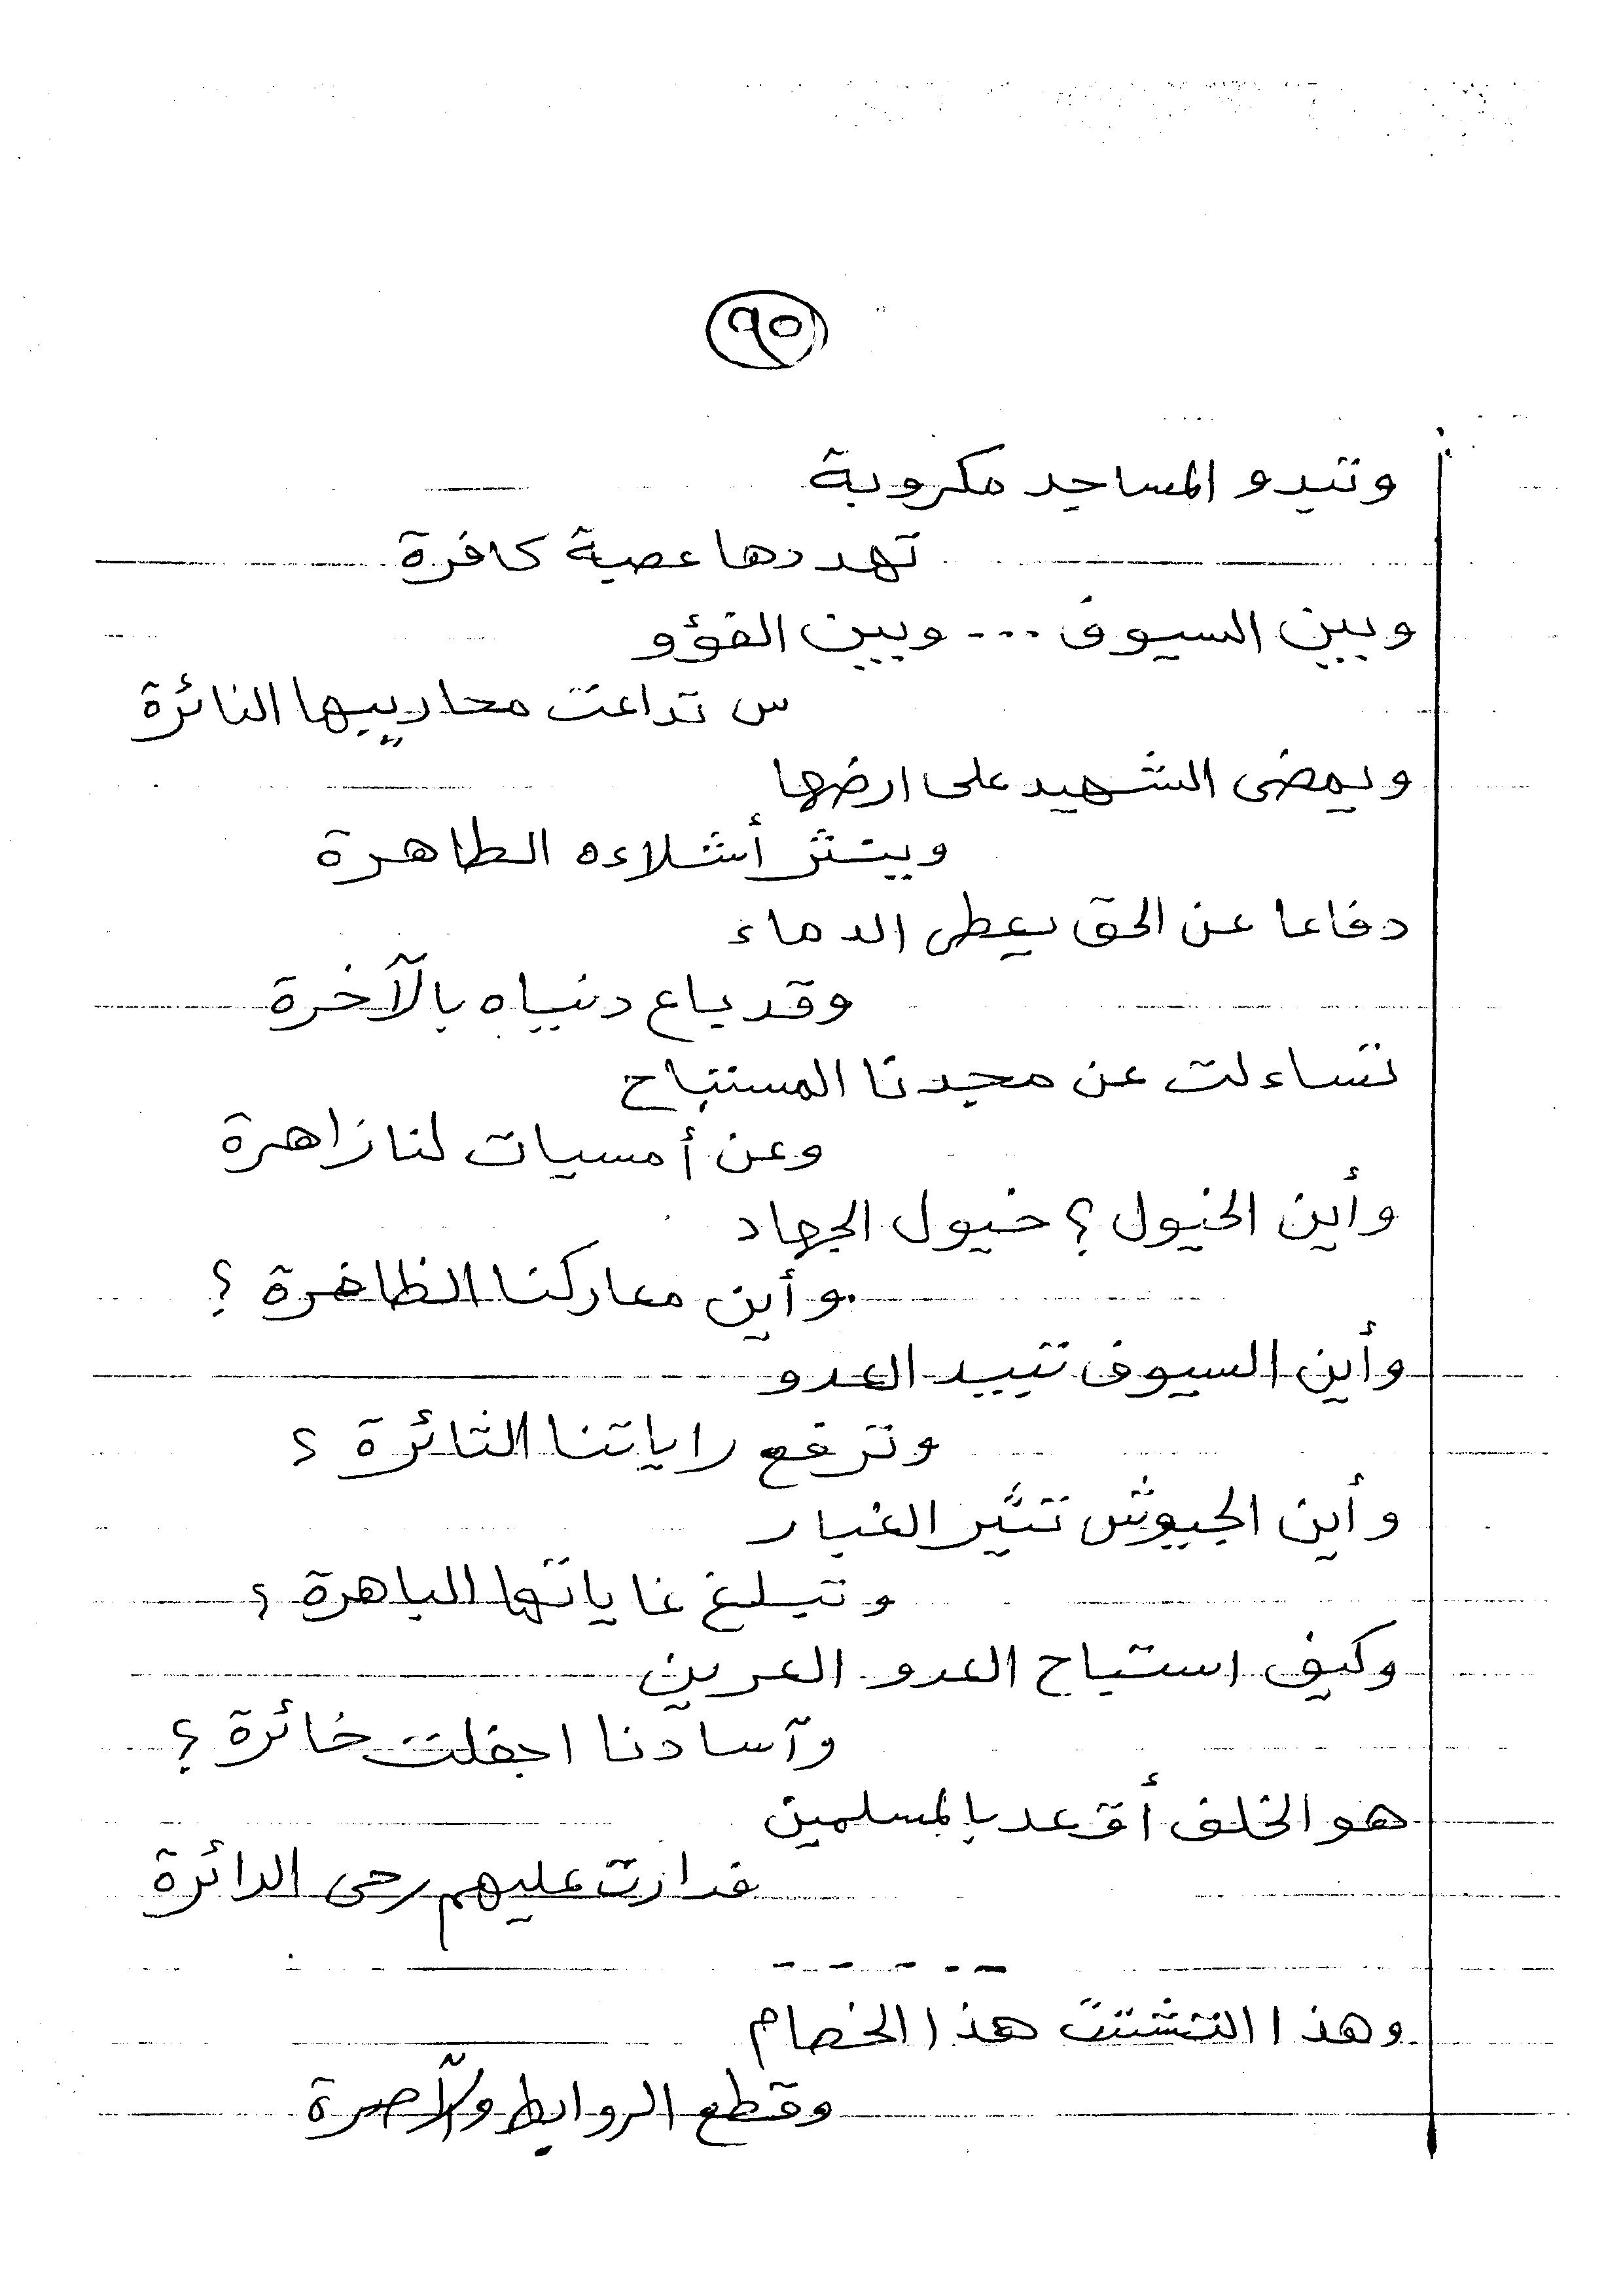 ٩٥
وتبدو المساجد مكروبة
تهددها عصبة كافرة
وبين السيوف ... وبين الفؤو
س تداعت محاريبها النائرة
ويمضى الشهيد على ارضها
وينثر أشلاءه الطاهرة
دفاعا عن الحق يعطى الدماء
وقد باع دنياه بالآخرة
تساءلت عن مجدنا المستباح
وعن أمسيات لنا زاهرة
وأين الخيول ؟ خيول الجهاد
وأين معاركنا الظافرة ؟
وأين السيوف تبيد العدو
وترفع راياتنا الثائرة ؟
وأين الجيوش تثير الغبار
وتبلغ غاياتها الباهرة ؟
وكيف استباح العدو العرين
وآسادنا اجفلت خائرة ؟
هو الخلف أقعد بالمسلمين
فدارت عليهم رحى الدائرة
وهذا التشتت هذا الخصام
وقطع الروابط والآصرة